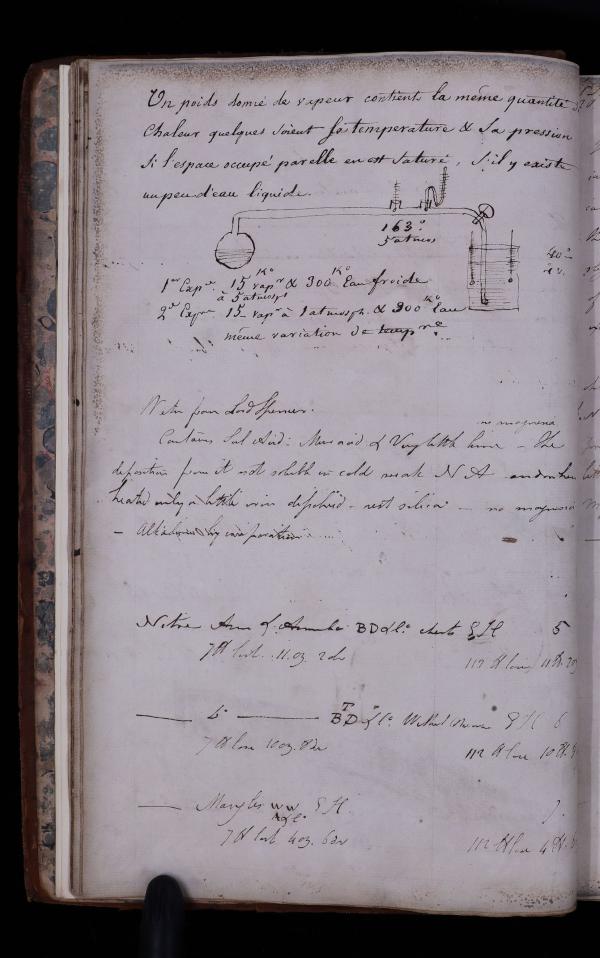 Un poids donné de vapeur contient la même quantité
Chaleur quelques soient sa temperature & sa pression
Si l'espace occupé par elle en est saturé, S'il y existe
un peu d'eau liquide.
163°
5 atmos
40°
1er Expce. 15 Ko vapr & 300 Ko Eau froide
à 5 atmosps
2d Expce 15 vapr à 1 atmosph. & 300 Ko Eau
même variation de tempre.
Water from Lord Spencer.
no magnesia
Contains Sul Acid: Mur acid & Very little lime - The
deposition from it not soluble in cold weak N A and when
heated only a little iron dissolved - rest silica - no magnesia
Nitre BD & Co. E I H 5
7 lost 11 oz. 2 dr
112 lose 11
Do BD & Co. E I H 6
7 lose 10 oz. 8 dr
112 lose 10
WW E I H 7.
& Co
7 lost 4 oz. 6 dr
112 lose 4